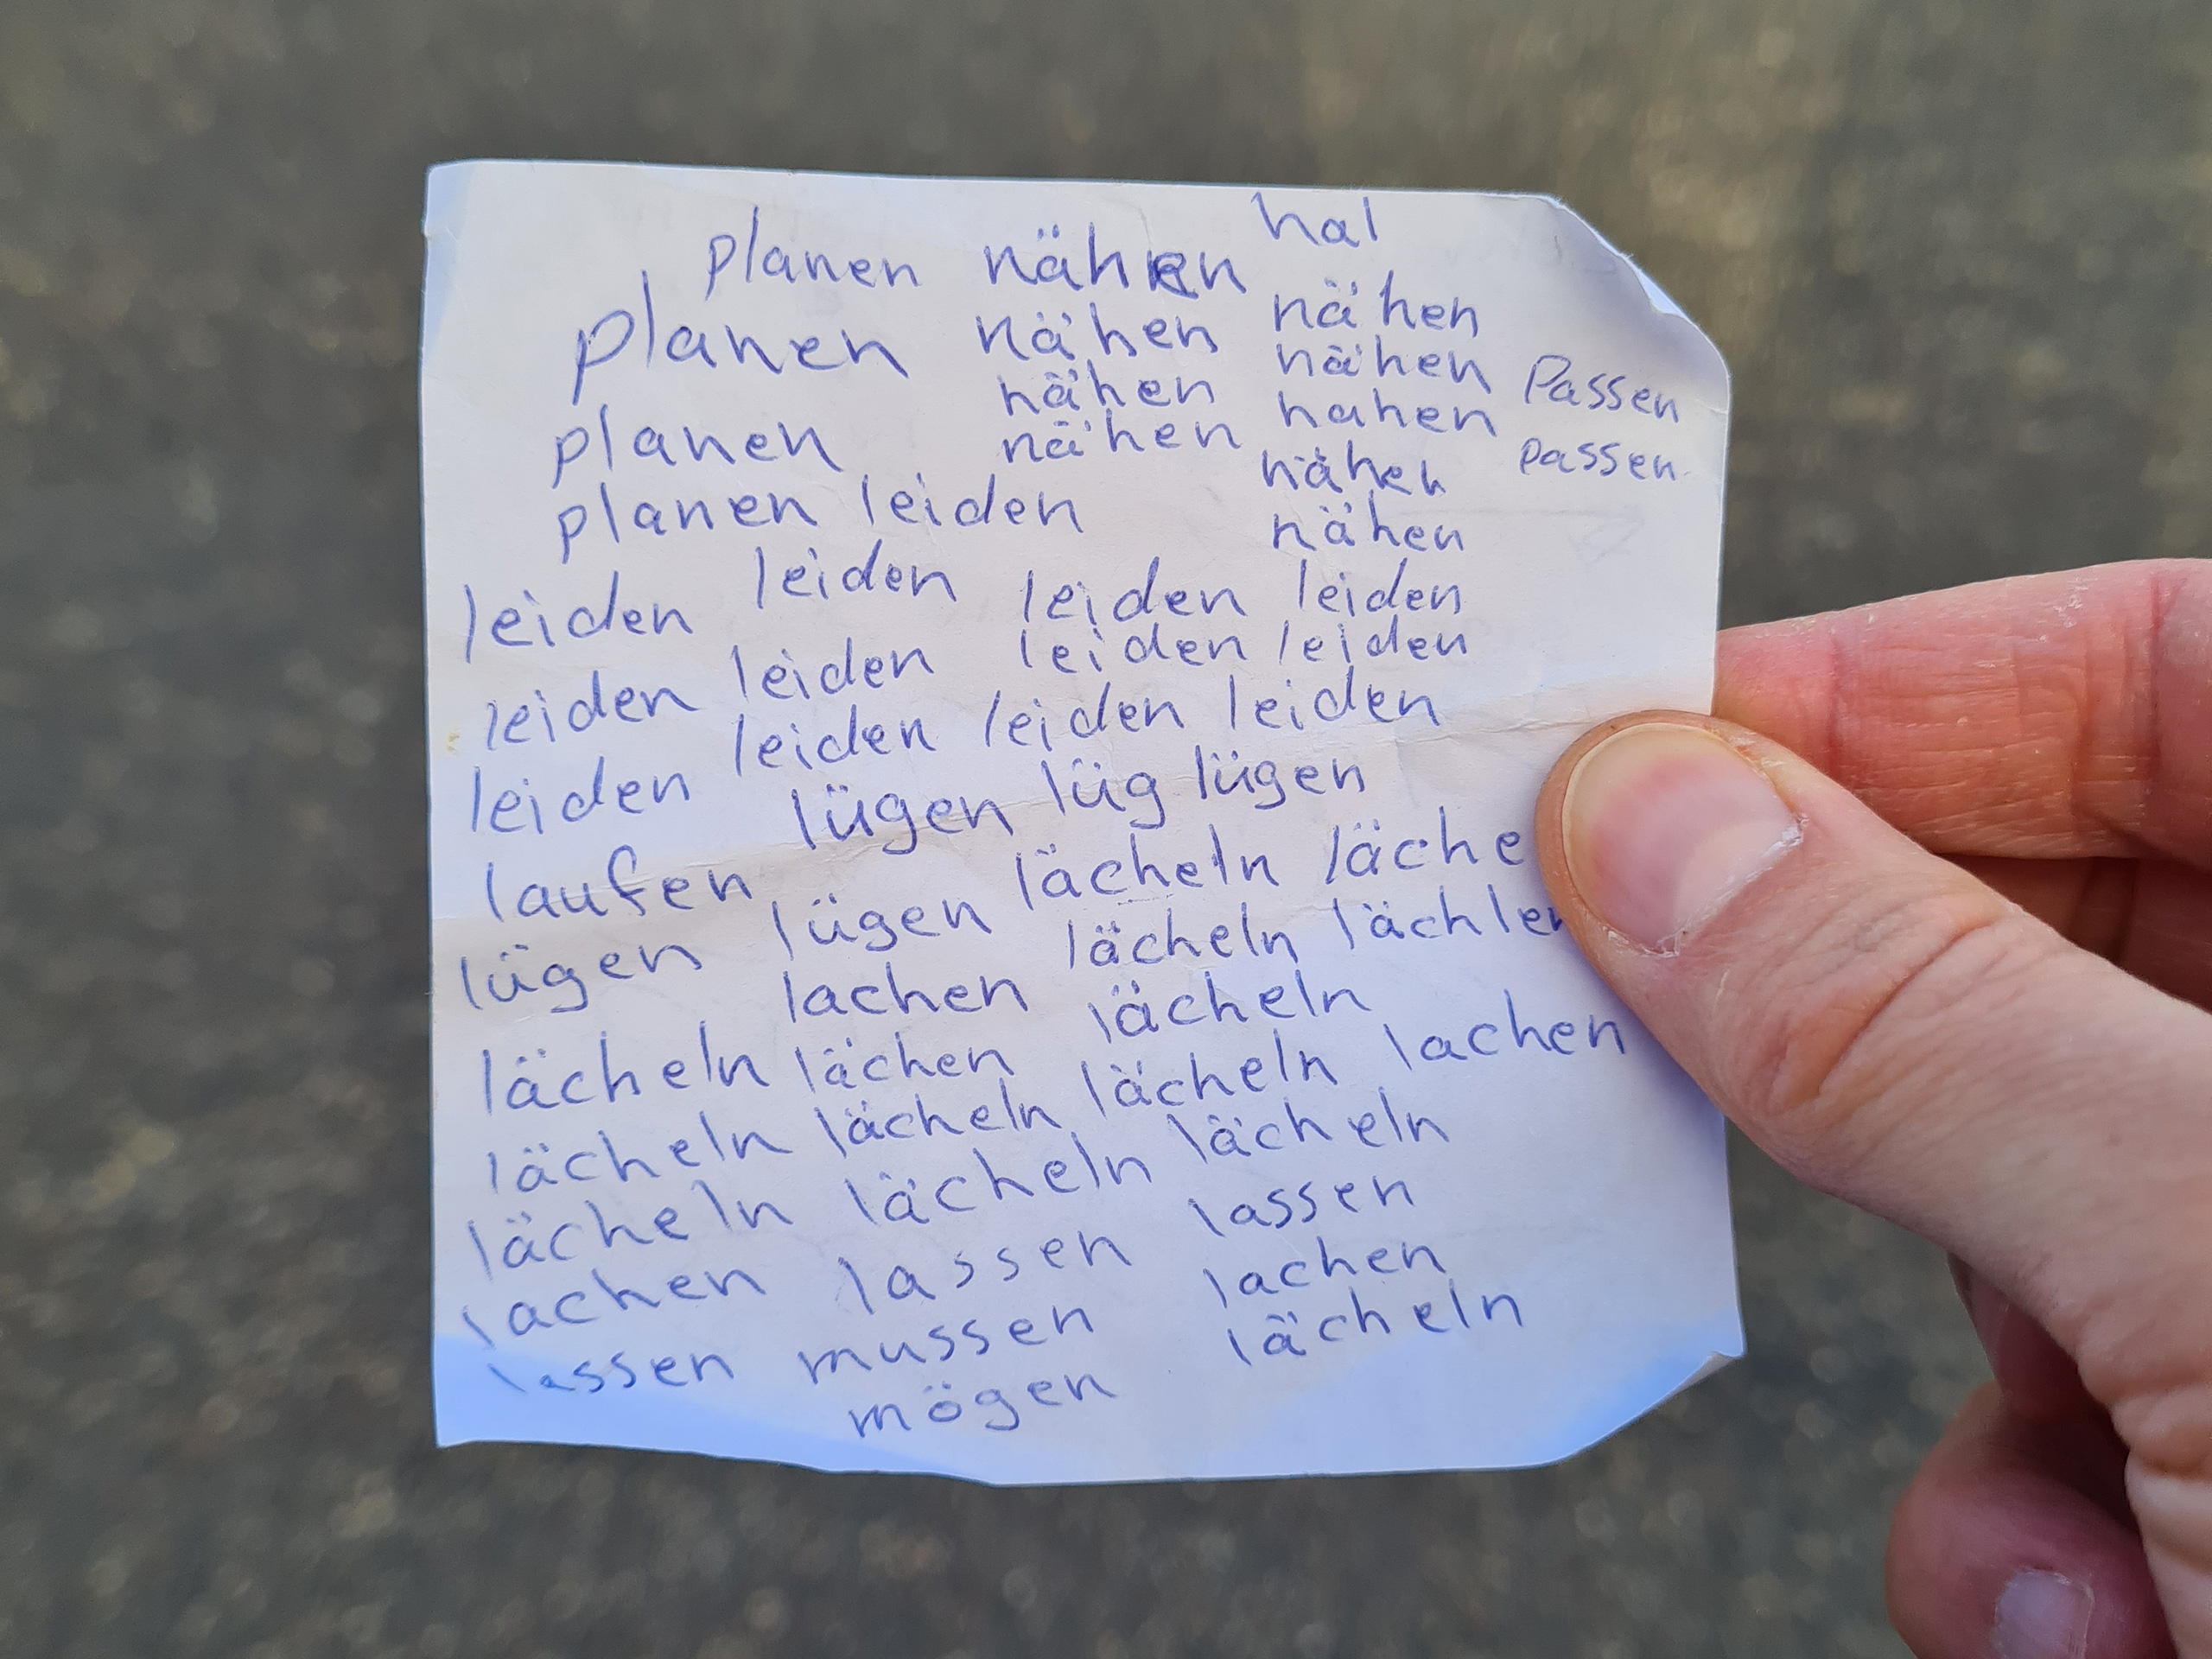 hal
planen nähen
planen nähen nähen
nähen nähen Passen
planen nähen hahen passen
nähen
planen leiden nähen
leiden leiden leiden leiden
leiden leiden leiden leiden
leiden leiden leiden leiden
lügen lüg lügen
laufen lächeln läche
lügen lügen lächeln lächlen
lachen lächeln
lächeln lächen lächeln lachen
lächeln lächeln lächeln
lächeln lächeln lassen
lachen lassen lachen
lassen mussen lächeln
mögen